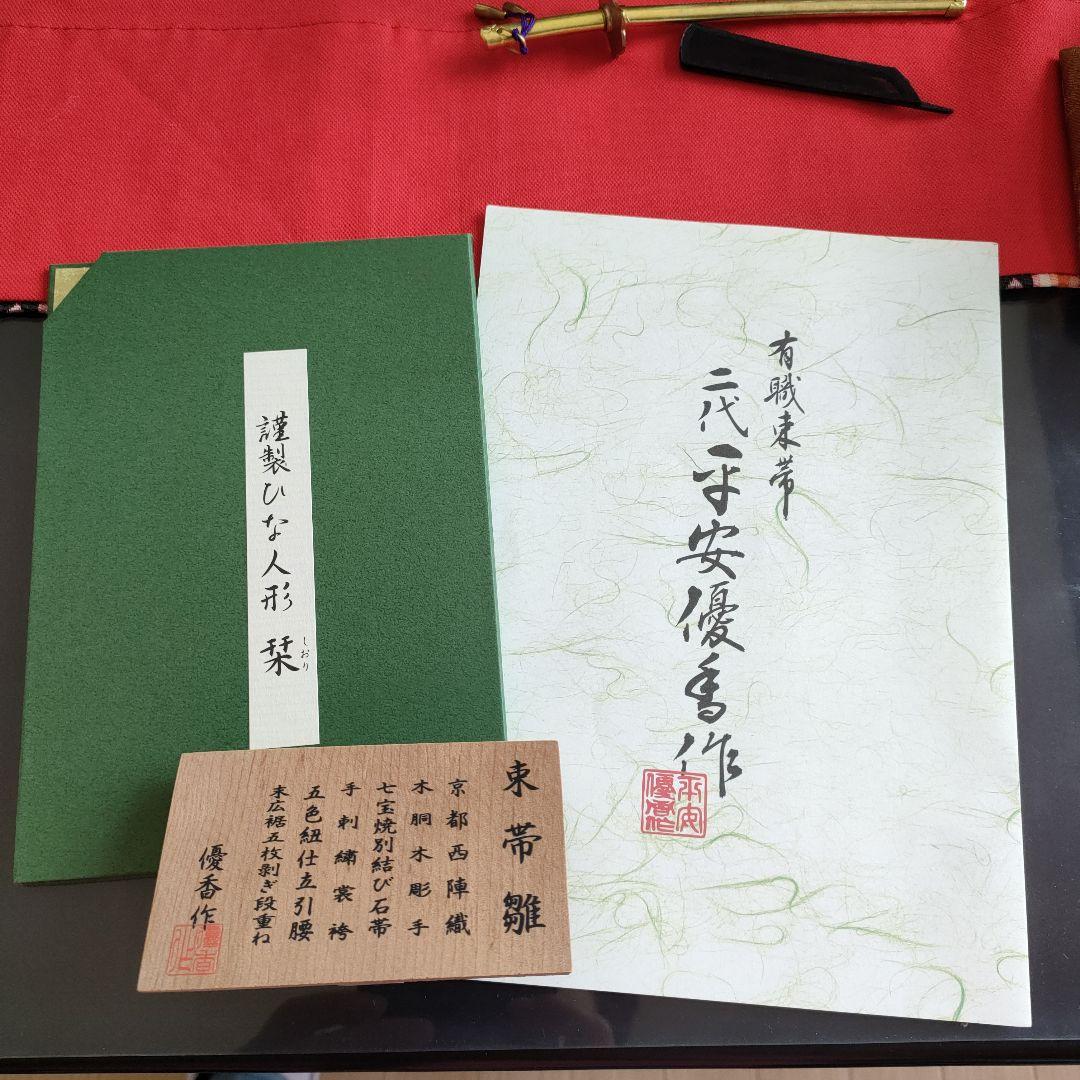 謹製ひな人形 栞
しおり
有職束帯
二代平安優香作
平安優香作
束帯雛
京都西陣織
木胴木彫手
七宝焼別結び石帯
手刺繍裳袴
五色紐仕立引腰
末広裾五枚剥ぎ段重ね
優香作